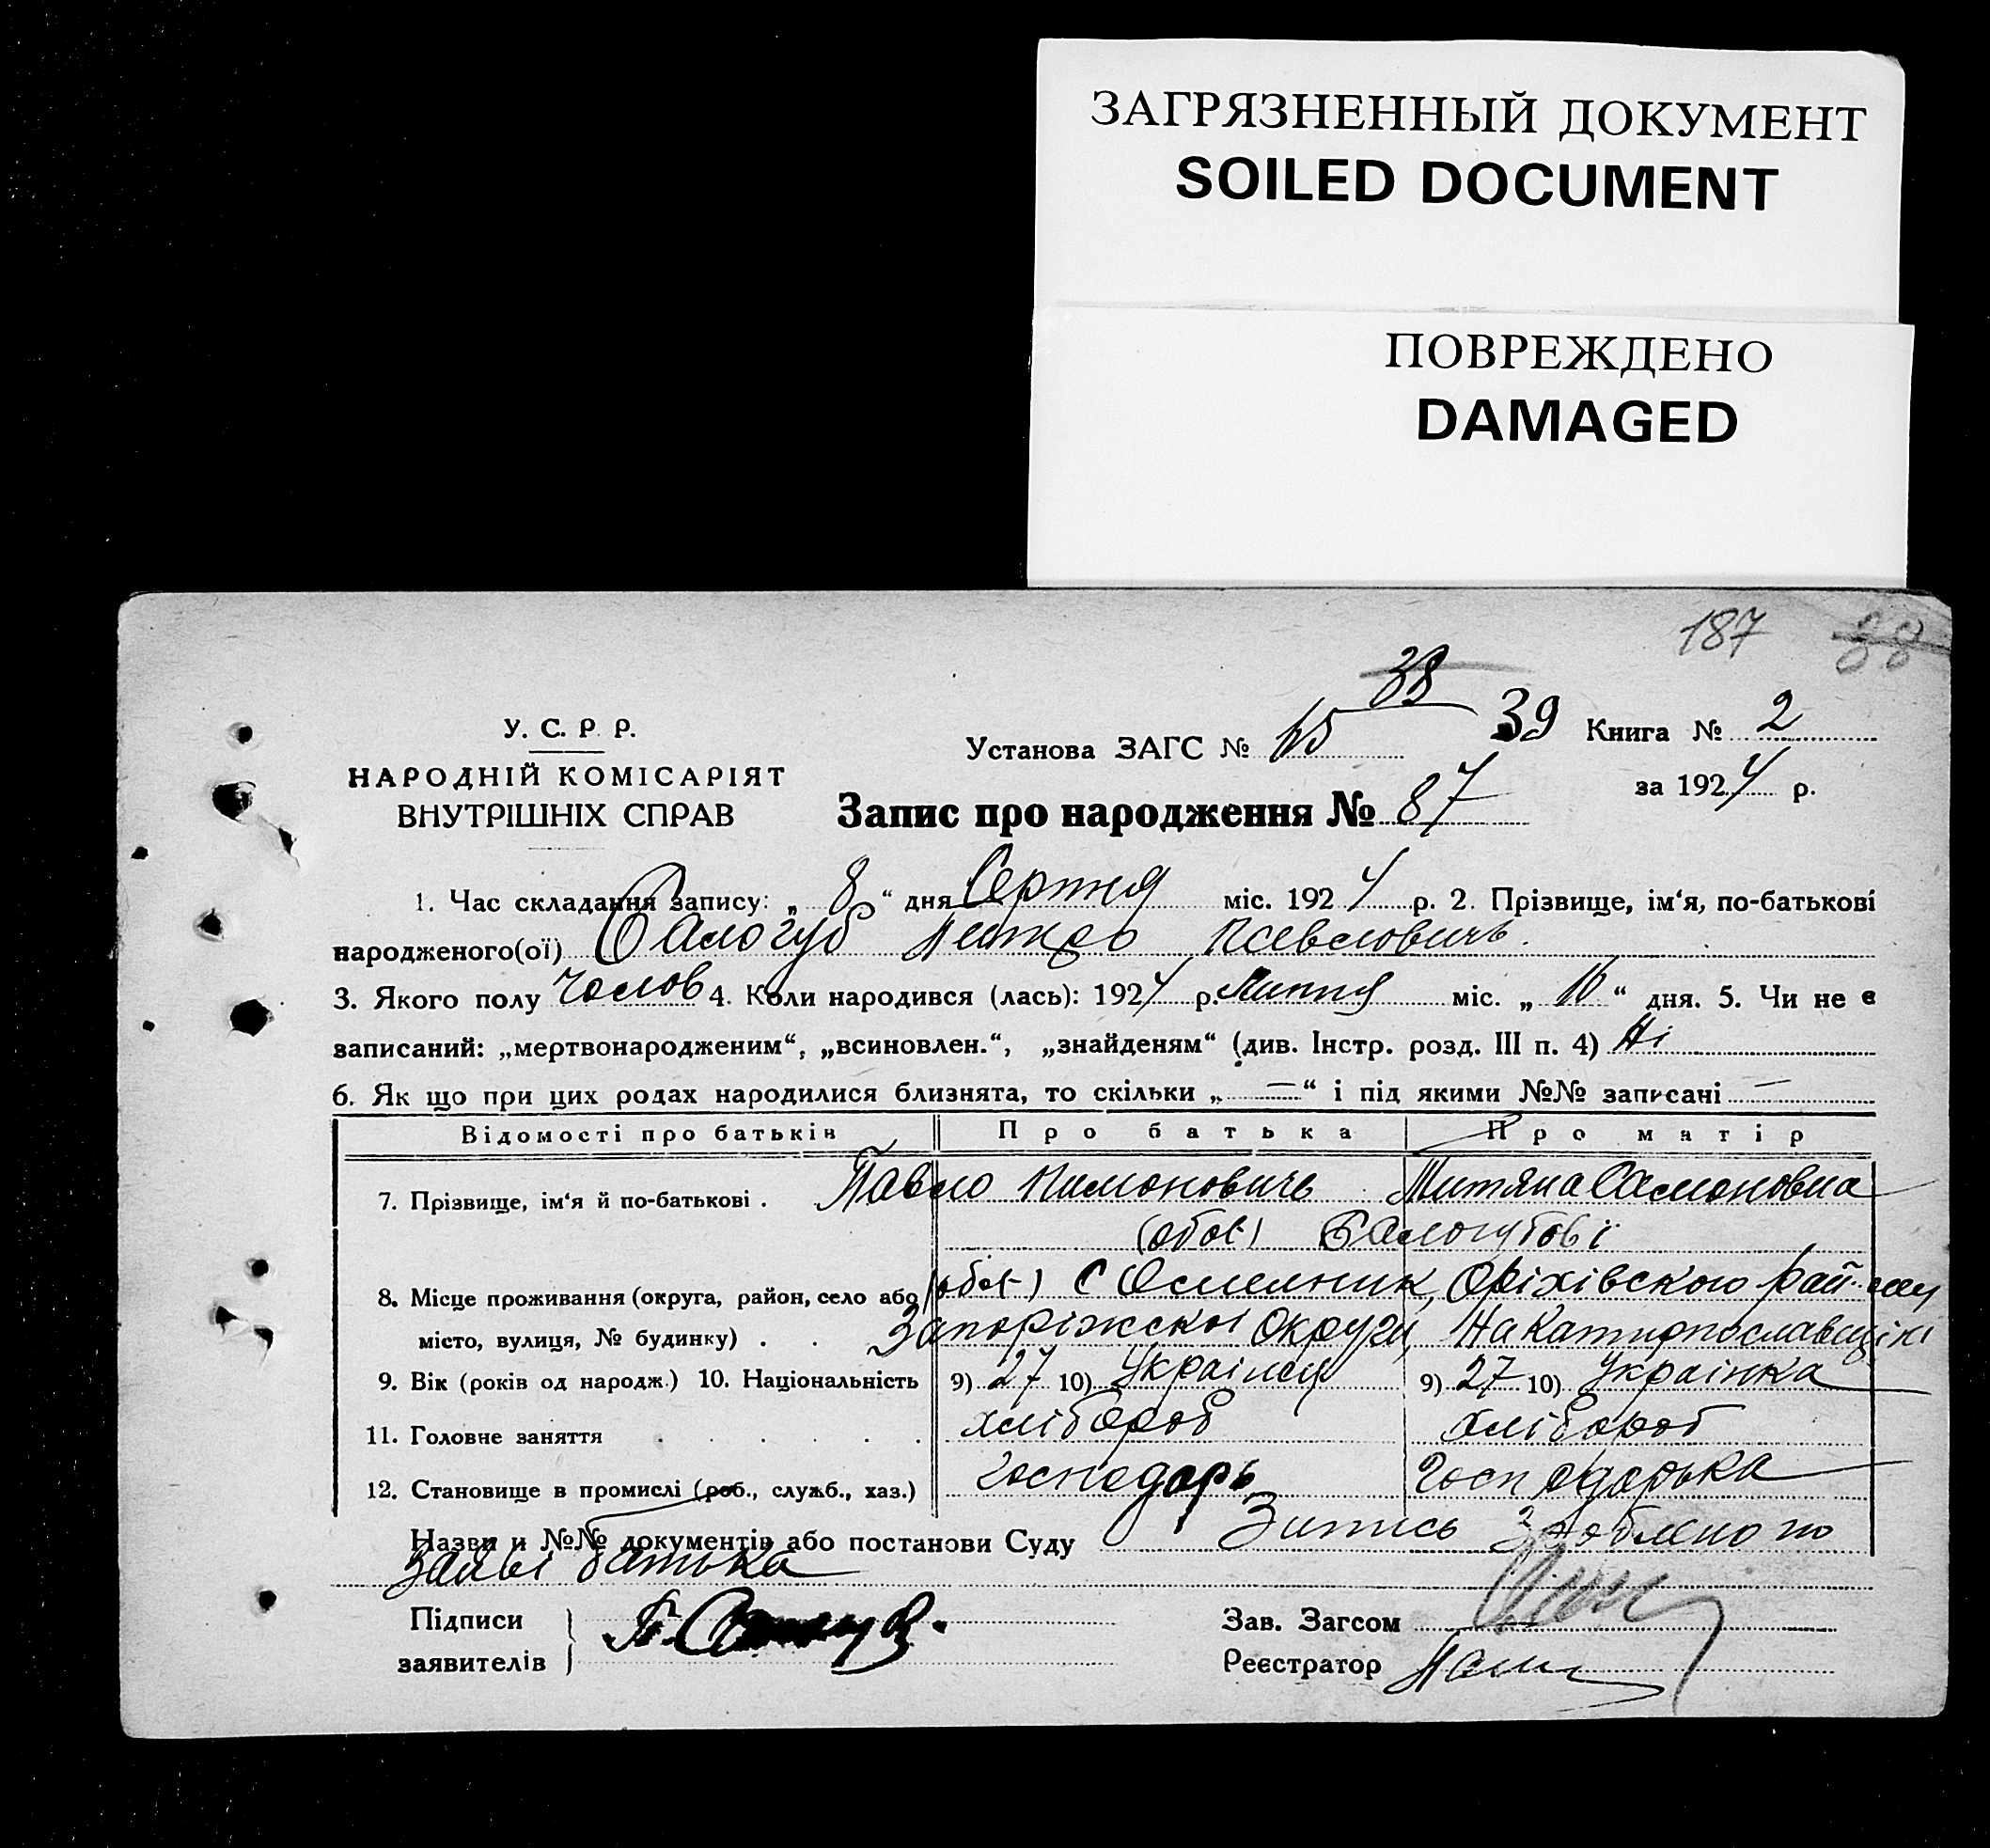 ЗАГРЯЗНЕННЫЙ ДОКУМЕНТ
SOILED DOCUMENT
ПОВРЕЖДЕНО
DAMAGED
187 38
38
У. С. Р. Р.
НАРОДНІЙ КОМІСАРІЯТ
ВНУТРІШНІХ СПРАВ
Установа ЗАГС № 15 39 Книга № 2
за 1924 р.
Запис про народження № 87
1. Час складання запису: „ 8 “ дня Серпня міс. 1924 р. 2. Прізвище, ім‘я, по-батькові
народженого(ої) Балогуб Петро Павловичь.
3. Якого полу Чолов 4. Коли народився (лась): 1924 р. Липня міс. „ 10 “ дня. 5. Чи не є
записаний: „мертвонародженим“, „всиновлен.“, „знайденям“ (див. Інстр. розд. III п. 4) Ні
6. Як що при цих родах народилися близнята, то скільки „ — “ і під якими №№ записані —
Відомості про батьків Про батька Про матір
7. Прізвище, ім‘я й по-батькові . Павло Пимоновичь Митяна Самоновна
(обоє) Балогубові
8. Місце проживання (округа, район, село або (обоє) с Омельник, Оріхівского рай-
місто, вулиця, № будинку) . . Запоріжскоі Округи, На Катиринославщіні
9. Вік (років од народж.) 10. Національність 9) 27 10) Украінец 9) 27 10) Украінка
11. Головне заняття . . . . . хлібороб хлібороб
12. Становище в промислі (роб., служб., хаз.) Господарь Господарька
Назви и №№ документів або постанови Суду Запись зроблено по
заяві батька
Підписи
заявителів
Зав. Загсом
Реєстратор